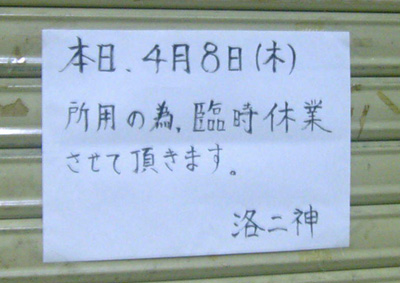 本日、4月8日(木)
所用の為、臨時休業
させて頂きます。
洛二神